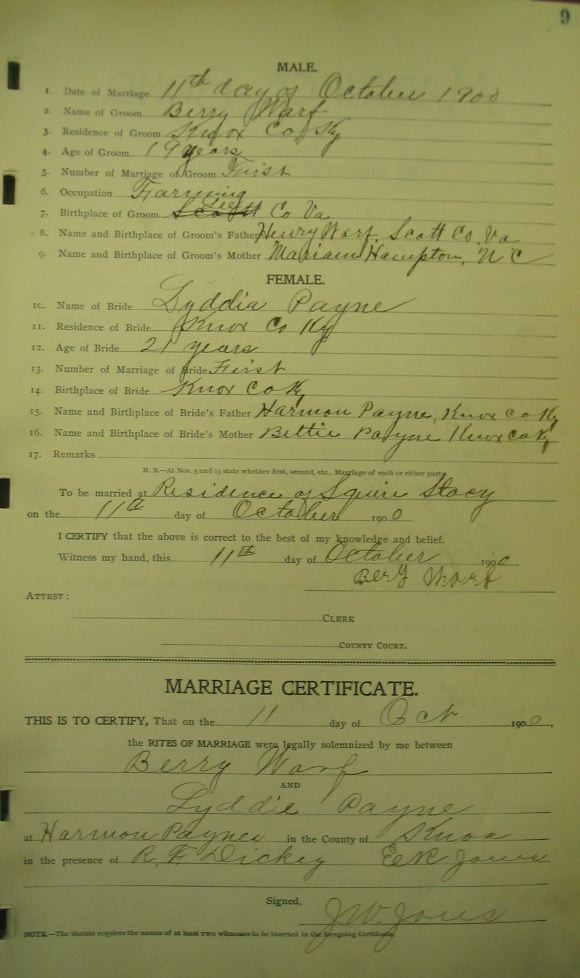 9
MALE.
1. Date of Marriage 11th day of October 1900
2. Name of Groom Berry Warf
3. Residence of Groom Knox Co Ky
4. Age of Groom 19 years
5. Number of Marriage of Groom First
6. Occupation Farming
7. Birthplace of Groom Scott Lee Co Va
8. Name and Birthplace of Groom's Father Henry Warf, Scott Co, Va
9. Name and Birthplace of Groom's Mother Mariam Hampton, N C
FEMALE.
10. Name of Bride Lyddia Payne
11. Residence of Bride Knox Co Ky
12. Age of Bride 21 years
13. Number of Marriage of Bride First
14. Birthplace of Bride Knox Co Ky
15. Name and Birthplace of Bride's Father Harmon Payne, Knox Co Ky
16. Name and Birthplace of Bride's Mother Bettie Payne Knox Co Ky
17. Remarks
N. B.—At Nos. 5 and 13 state whether first, second, etc., Marriage of each or either party.
To be married at Residence of Squire Stacy
on the 11th day of October 1900
I CERTIFY that the above is correct to the best of my knowledge and belief.
Witness my hand, this 11th day of October 1900
Berry Warf
ATTEST:
CLERK
COUNTY COURT.
MARRIAGE CERTIFICATE.
THIS IS TO CERTIFY, That on the 11 day of Oct 1900,
the RITES OF MARRIAGE were legally solemnized by me between
Berry Warf
AND
Lyddie Payne
at Harmon Paynes in the County of Knox
in the presence of R. F. Dickey E R Jones
Signed,
J W. Jones
NOTE.—The Statute requires the names of at least two witnesses to be inserted in the foregoing Certificate.